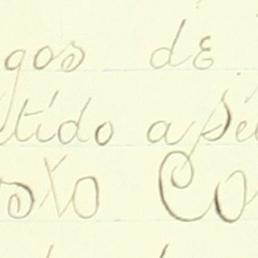 gos de
tido a se
sto Co